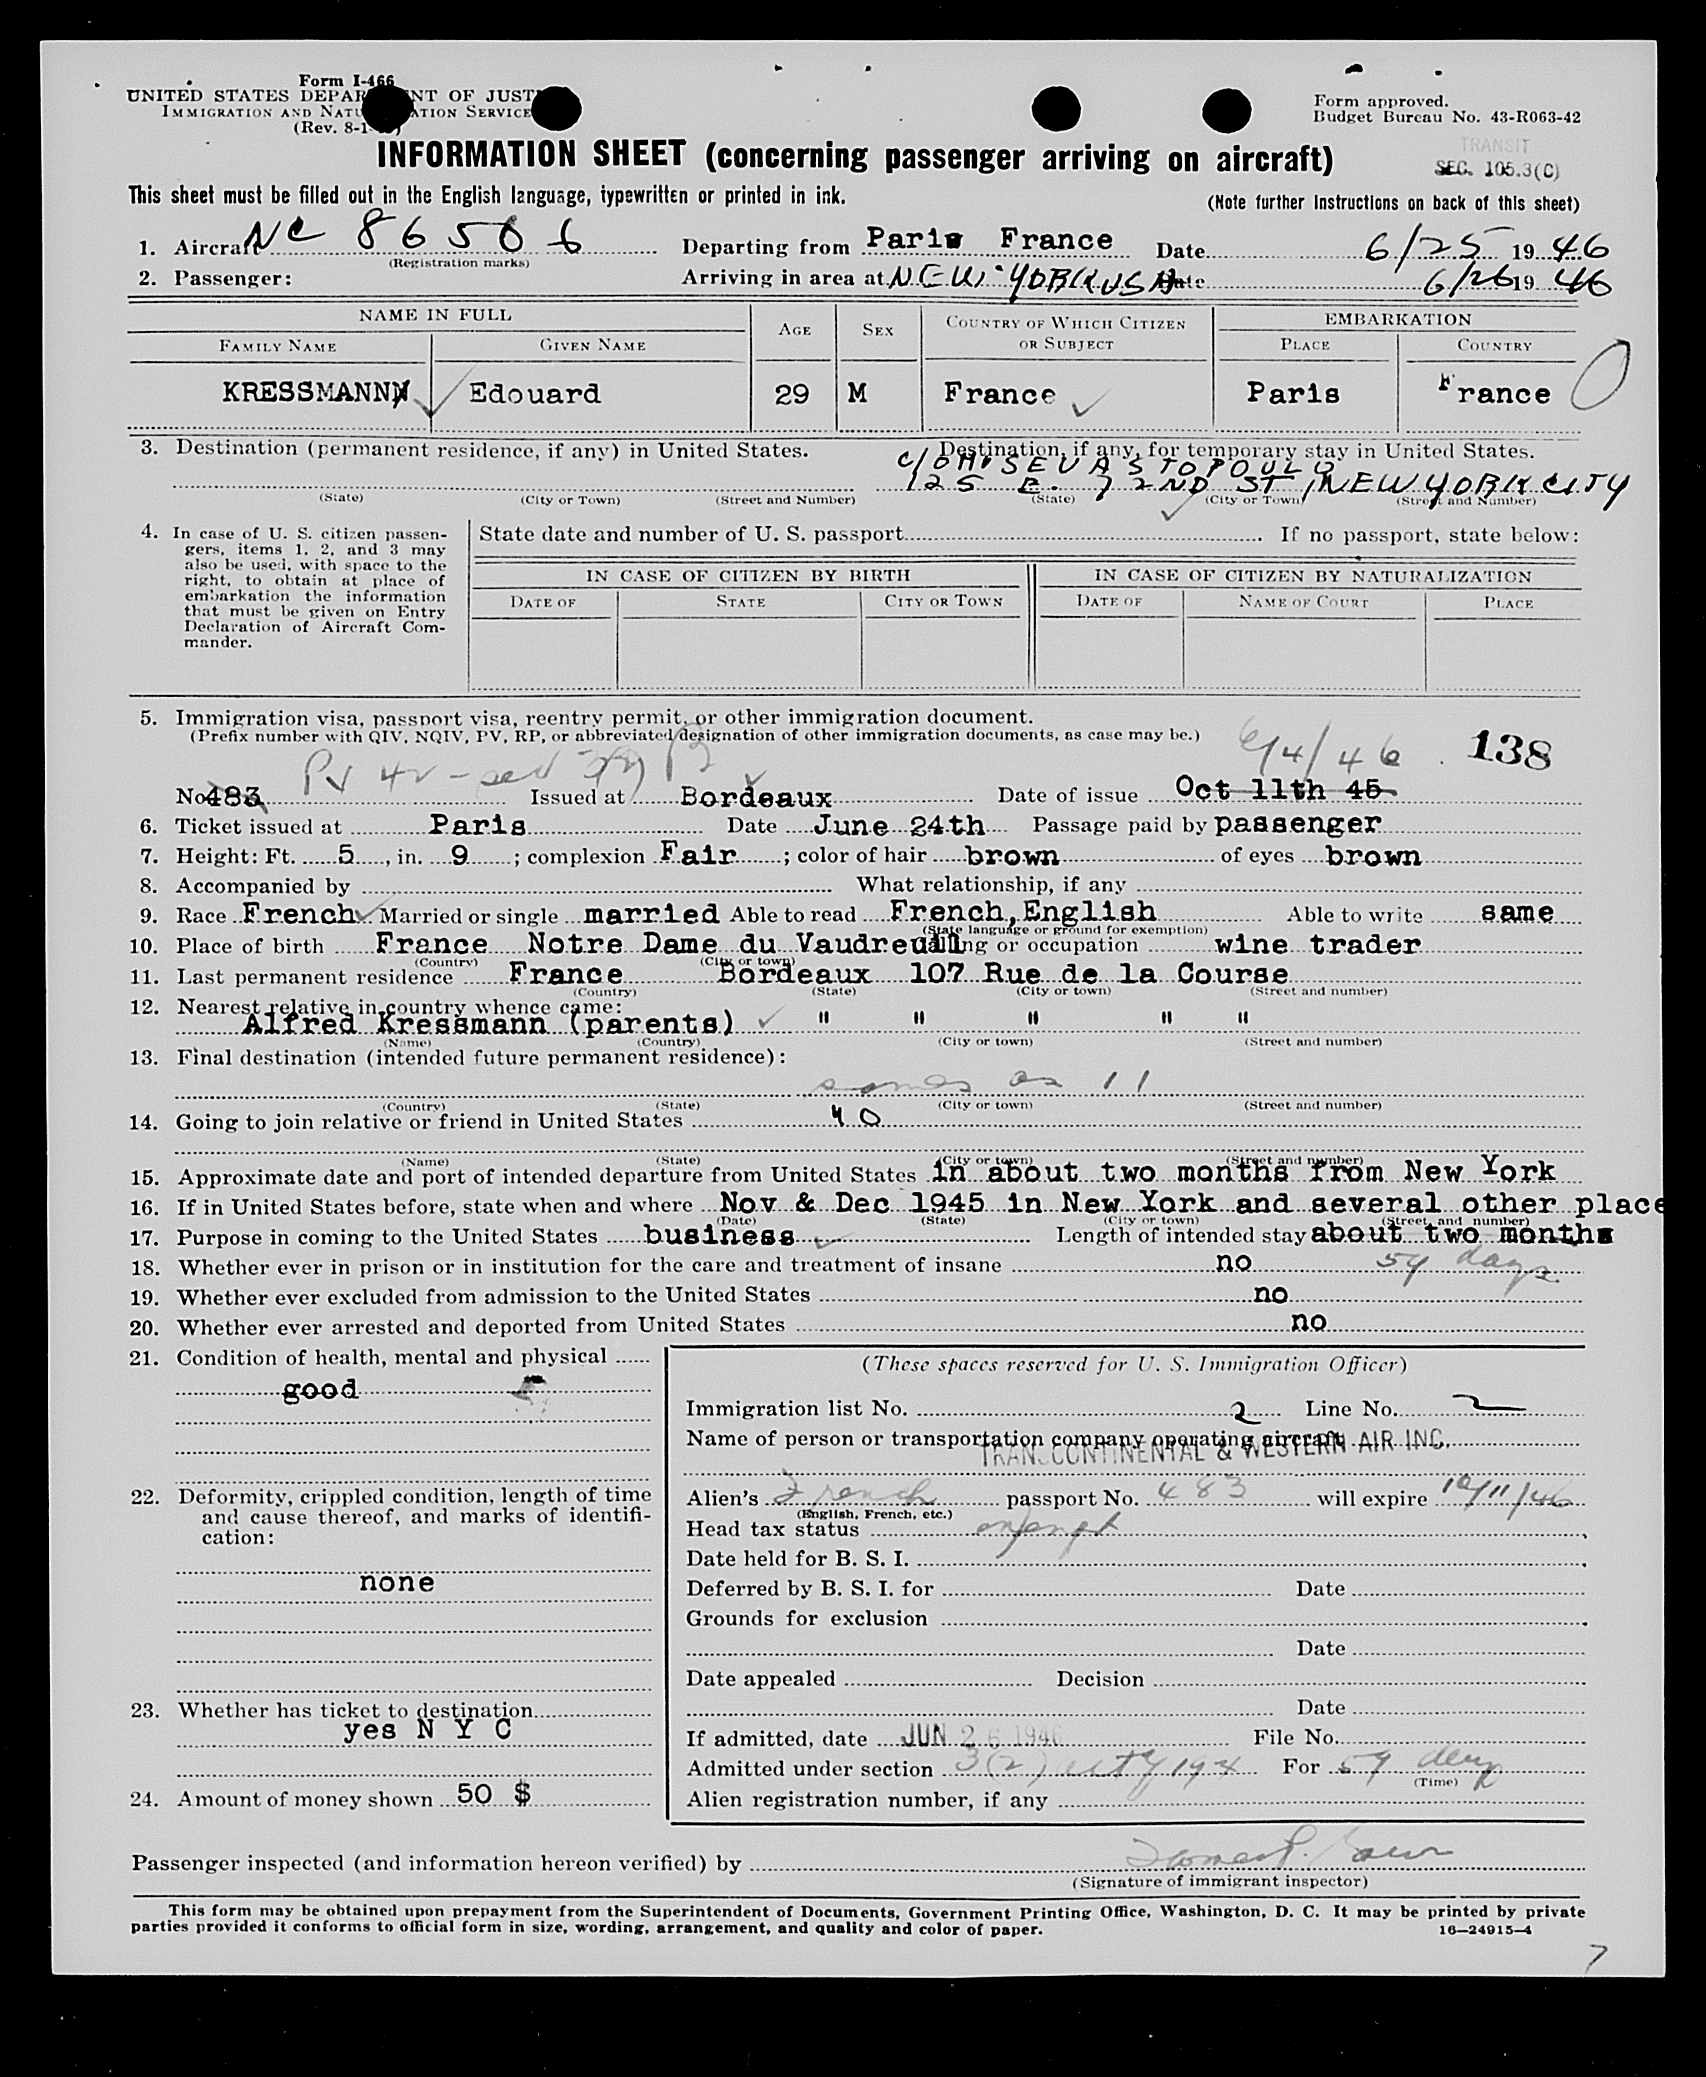 Form I-466
UNITED STATES DEPARTMENT OF JUSTICE
IMMIGRATION AND NATURALIZATION SERVICE
(Rev. 8-1-
Form approved.
Budget Bureau No. 43-R063-42
TRANSIT
SEC. 105.3(C)
INFORMATION SHEET (concerning passenger arriving on aircraft)
This sheet must be filled out in the English language, typewritten or printed in ink.
(Note further instructions on back of this sheet)
1. Aircraft NC 86506 Departing from Paris France Date 6/25 1946
(Registration marks)
2. Passenger: Arriving in area at NEW YORK USA Date 6/26 1946
NAME IN FULL AGE SEX COUNTRY OF WHICH CITIZEN OR SUBJECT EMBARKATION
FAMILY NAME GIVEN NAME PLACE COUNTRY
KRESSMANN Edouard 29 M France Paris France 0
3. Destination (permanent residence, if any) in United States. Destination, if any, for temporary stay in United States.
C/O SEVASTOPOULO
125 E. 72ND ST, NEW YORK CITY
(State) (City or Town) (Street and Number) (State) (City or Town) (Street and Number)
4. In case of U. S. citizen passengers, items 1, 2, and 3 may also be used, with space to the right, to obtain at place of embarkation the information that must be given on Entry Declaration of Aircraft Commander.
State date and number of U. S. passport If no passport, state below:
IN CASE OF CITIZEN BY BIRTH IN CASE OF CITIZEN BY NATURALIZATION
DATE OF STATE CITY OR TOWN DATE OF NAME OF COURT PLACE
5. Immigration visa, passport visa, reentry permit, or other immigration document.
(Prefix number with QIV, NQIV, PV, RP, or abbreviated designation of other immigration documents, as case may be.)
PV 42 - 6/4/46 138
No 483 Issued at Bordeaux Date of issue Oct 11th 45
6. Ticket issued at Paris Date June 24th Passage paid by passenger
7. Height: Ft. 5, in. 9; complexion Fair; color of hair brown of eyes brown
8. Accompanied by What relationship, if any
9. Race French Married or single married Able to read French, English Able to write same
(State language or ground for exemption)
10. Place of birth France Notre Dame du Vaudreuil Calling or occupation wine trader
(Country) (City or town)
11. Last permanent residence France Bordeaux 107 Rue de la Course
(Country) (State) (City or town) (Street and number)
12. Nearest relative in country whence came:
Alfred Kressmann (parents) " " " " "
(Name) (Country) (City or town) (Street and number)
13. Final destination (intended future permanent residence):
same as 11
(Country) (State) (City or town) (Street and number)
14. Going to join relative or friend in United States NO
(Name) (State) (City or town) (Street and number)
15. Approximate date and port of intended departure from United States in about two months from New York
16. If in United States before, state when and where Nov & Dec 1945 in New York and several other place
(Date) (State) (City or town) (Street and number)
17. Purpose in coming to the United States business Length of intended stay about two months
59 days
18. Whether ever in prison or in institution for the care and treatment of insane no
19. Whether ever excluded from admission to the United States no
20. Whether ever arrested and deported from United States no
21. Condition of health, mental and physical
good
22. Deformity, crippled condition, length of time and cause thereof, and marks of identification:
none
23. Whether has ticket to destination
yes N Y C
24. Amount of money shown 50 $
(These spaces reserved for U. S. Immigration Officer)
Immigration list No. 2 Line No. 2
Name of person or transportation company operating aircraft
TRANSCONTINENTAL & WESTERN AIR INC.
Alien's French passport No. 483 will expire 10/11/46
(English, French, etc.)
Head tax status exempt
Date held for B. S. I.
Deferred by B. S. I. for Date
Grounds for exclusion
Date
Date appealed Decision
Date
If admitted, date JUN 26 1946 File No.
Admitted under section 3(2) act 1924 For 59 days
(Time)
Alien registration number, if any
Passenger inspected (and information hereon verified) by
(Signature of immigrant inspector)
This form may be obtained upon prepayment from the Superintendent of Documents, Government Printing Office, Washington, D. C. It may be printed by private
parties provided it conforms to official form in size, wording, arrangement, and quality and color of paper.
16—24915-4
7